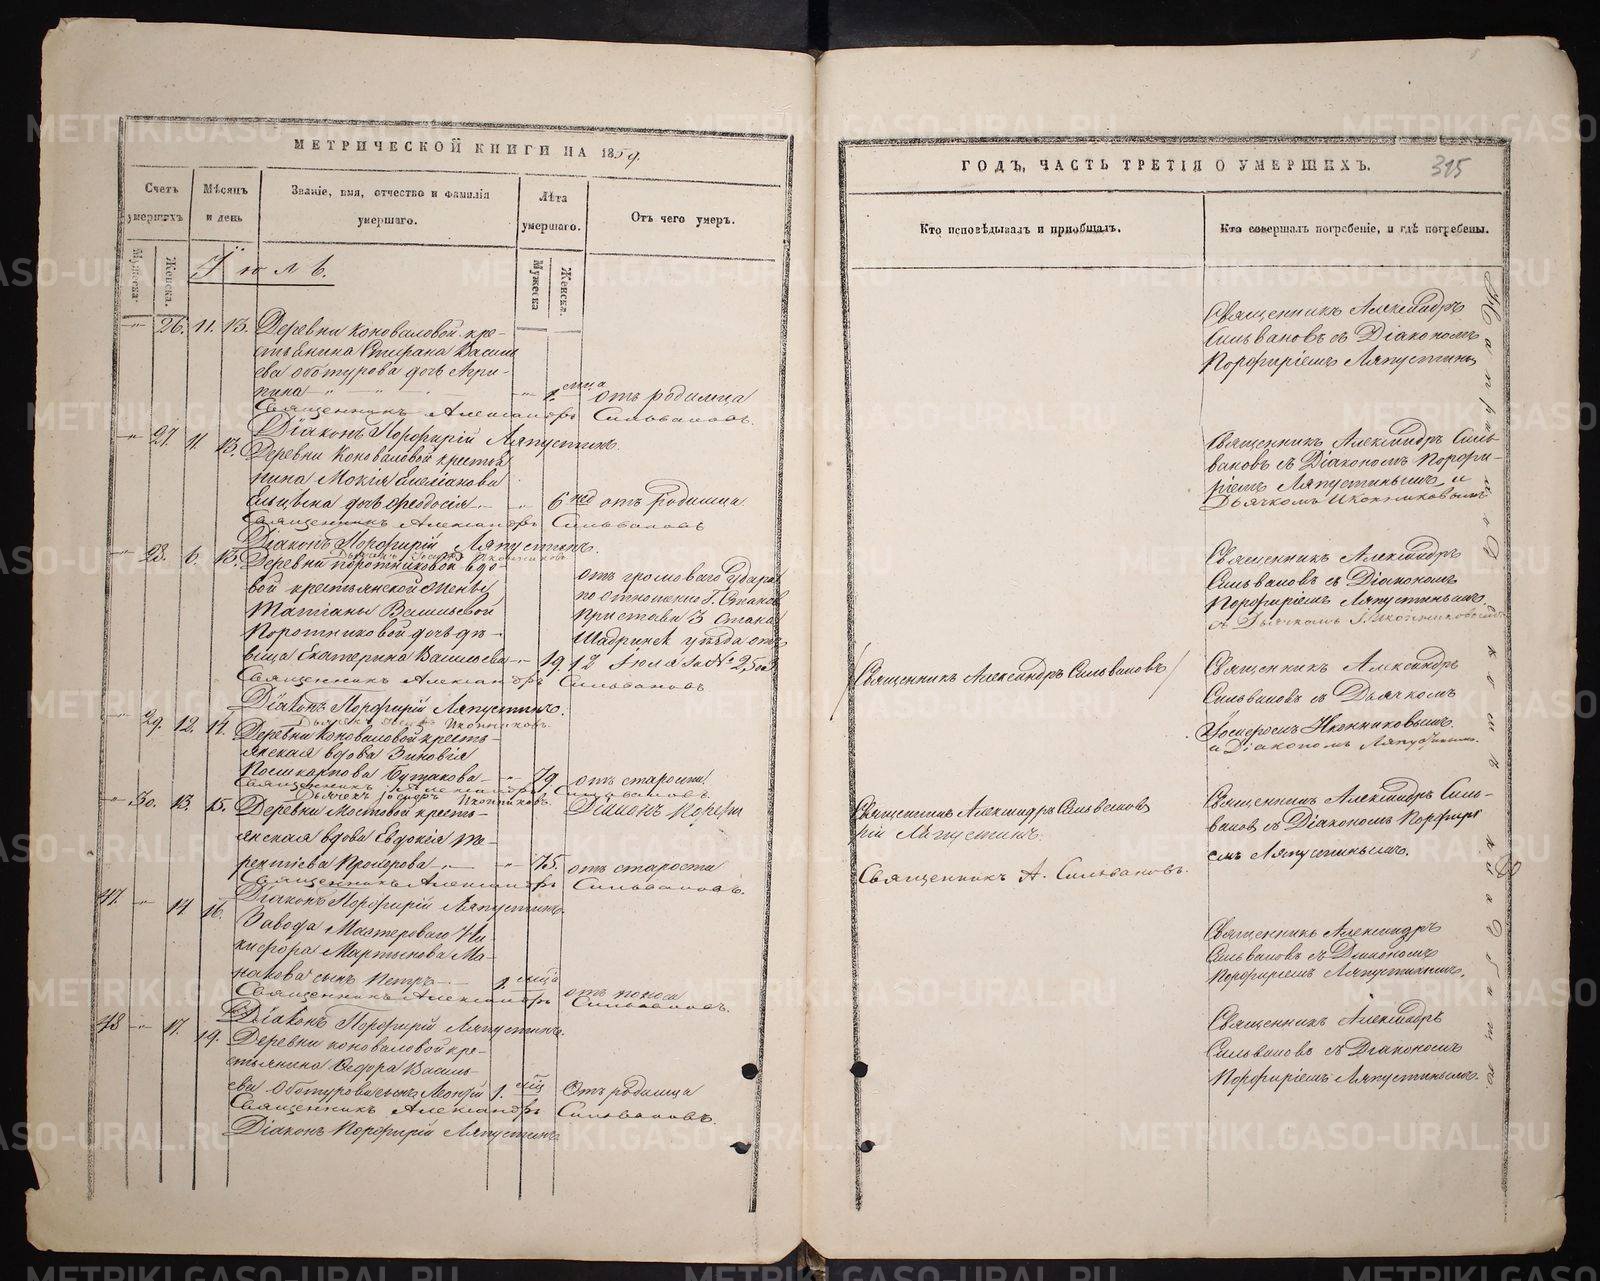 МЕТРИЧЕСКОЙ КНИГИ НА 1859.
Счетъ умершихъ
Мѣсяцъ и день
Званіе, имя, отчество и фамилія умершаго.
Лѣта умершаго.
Отъ чего умеръ.
Мужеска.
Женска.
Мужеска
Женска.
Іюль.
" 26. 11. 13. Деревни Коноваловой кре-
стьянина Стефана Василь
ева Оботурова дочь Агри-
пина " 1. мца отъ родимца
Священникъ Александръ Сильвановъ.
Діаконъ Порфирій Ляпустинъ.
" 27. 11. 13. Деревни Коноваловой крестья
нина Мокія Емеліанова
Ельцева дочь Феодосія " 6 нед отъ родимца
Священникъ Александръ Сильвановъ
Діаконъ Порфирій Ляпустинъ.
Дьячекъ Іосифъ Иконниковъ
" 28. 6. 13. Деревни Поротниковой вдо-
вой крестьянской Жены
Татіаны Васильевой
Поротниковой дочь дѣ-
вица Екатерина Васильева " 19
отъ громоваго удара
по отношенію Г. Станов.
Пристава 3 Стана
Шадринск уѣзда отъ
17 Іюля за № 2503
Священникъ Александръ Сильвановъ
Діаконъ Порфирій Ляпустинъ.
Дьячекъ Іосифъ Иконниковъ.
" 29. 12. 14. Деревни Коноваловой кресть-
янская вдова Зиновія
Поликарпова Бутакова " 79 отъ старости
Священникъ Александръ Сильвановъ.
Дьячекъ Іосифъ Иконниковъ.
Діаконъ Порфи
" 30. 13. 15. Деревни Мостовой кресть-
янская вдова Евдокія Те-
рентіева Прохорова " 75. отъ старости
Священникъ Александръ Сильвановъ.
Діаконъ Порфирій Ляпустинъ.
47. " 14. 16. Завода Мастероваго Ни-
кифора Мартынова Ма-
сынъ Петръ 1. мца отъ поноса
Священникъ Александръ Сильвановъ.
Діаконъ Порфирій Ляпустинъ.
48 " 17. 19. Деревни Коноваловой кре-
стьянина Федора Василь-
ева Оботурова сынъ 1. мц Отъ родимца
Священникъ Александръ Сильвановъ.
Діаконъ Порфирій Ляпустинъ
ГОДЪ, ЧАСТЬ ТРЕТІЯ О УМЕРШИХЪ.
315
Кто исповѣдывалъ и пріобщалъ.
Кто совершалъ погребеніе, и гдѣ погребены.
Священникъ Александръ
Сильвановъ съ Діакономъ
Порфиріемъ Ляпустинымъ
Священникъ Александръ Силь-
вановъ съ Діакономъ Порфи-
ріемъ Ляпустинымъ и
Дьячкомъ Иконниковымъ
Священникъ Александръ
Сильвановъ съ Діакономъ
Порфиріемъ Ляпустинымъ
и Дьячкомъ І. Иконниковымъ
/Священникъ Александръ Сильвановъ/
Священникъ Александръ
Сильвановъ съ Дьячкомъ
Іосифомъ Иконниковымъ.
и Діакономъ Ляпустинымъ.
Священникъ Александръ Сильвановъ
рій Ляпустинъ.
Священникъ А. Сильвановъ.
Священникъ Александръ Силь-
вановъ съ Діакономъ Порфирі
емъ Ляпустинымъ.
Священникъ Александръ
Сильвановъ съ Діакономъ
Порфиріемъ Ляпустинымъ.
Священникъ Александръ
Сильвановъ съ Діакономъ
Порфиріемъ Ляпустинымъ.
На приходскомъ кладбищѣ.
METRIKI.GASO-URAL.RU